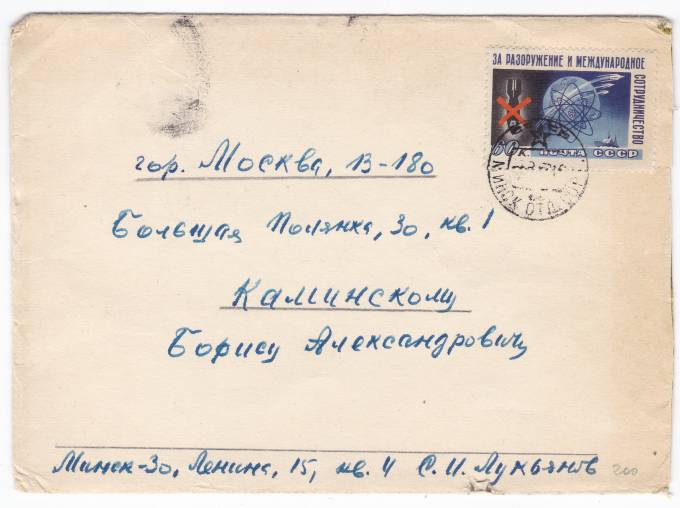 ЗА РАЗОРУЖЕНИЕ И МЕЖДУНАРОДНОЕ
СОТРУДНИЧЕСТВО
60 К. ПОЧТА СССР
МИНСК
гор. Москва, В-180
Большая Полянка, 30, кв. 1
Каминскому
Борису Александровичу
Минск-30, Ленина, 15, кв. 4 С. И. Лукьянов
200